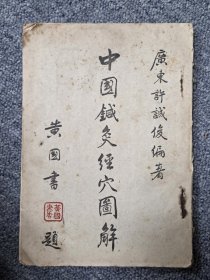 廣東許誠俊編著
中國鍼灸經穴圖解
黄國書題